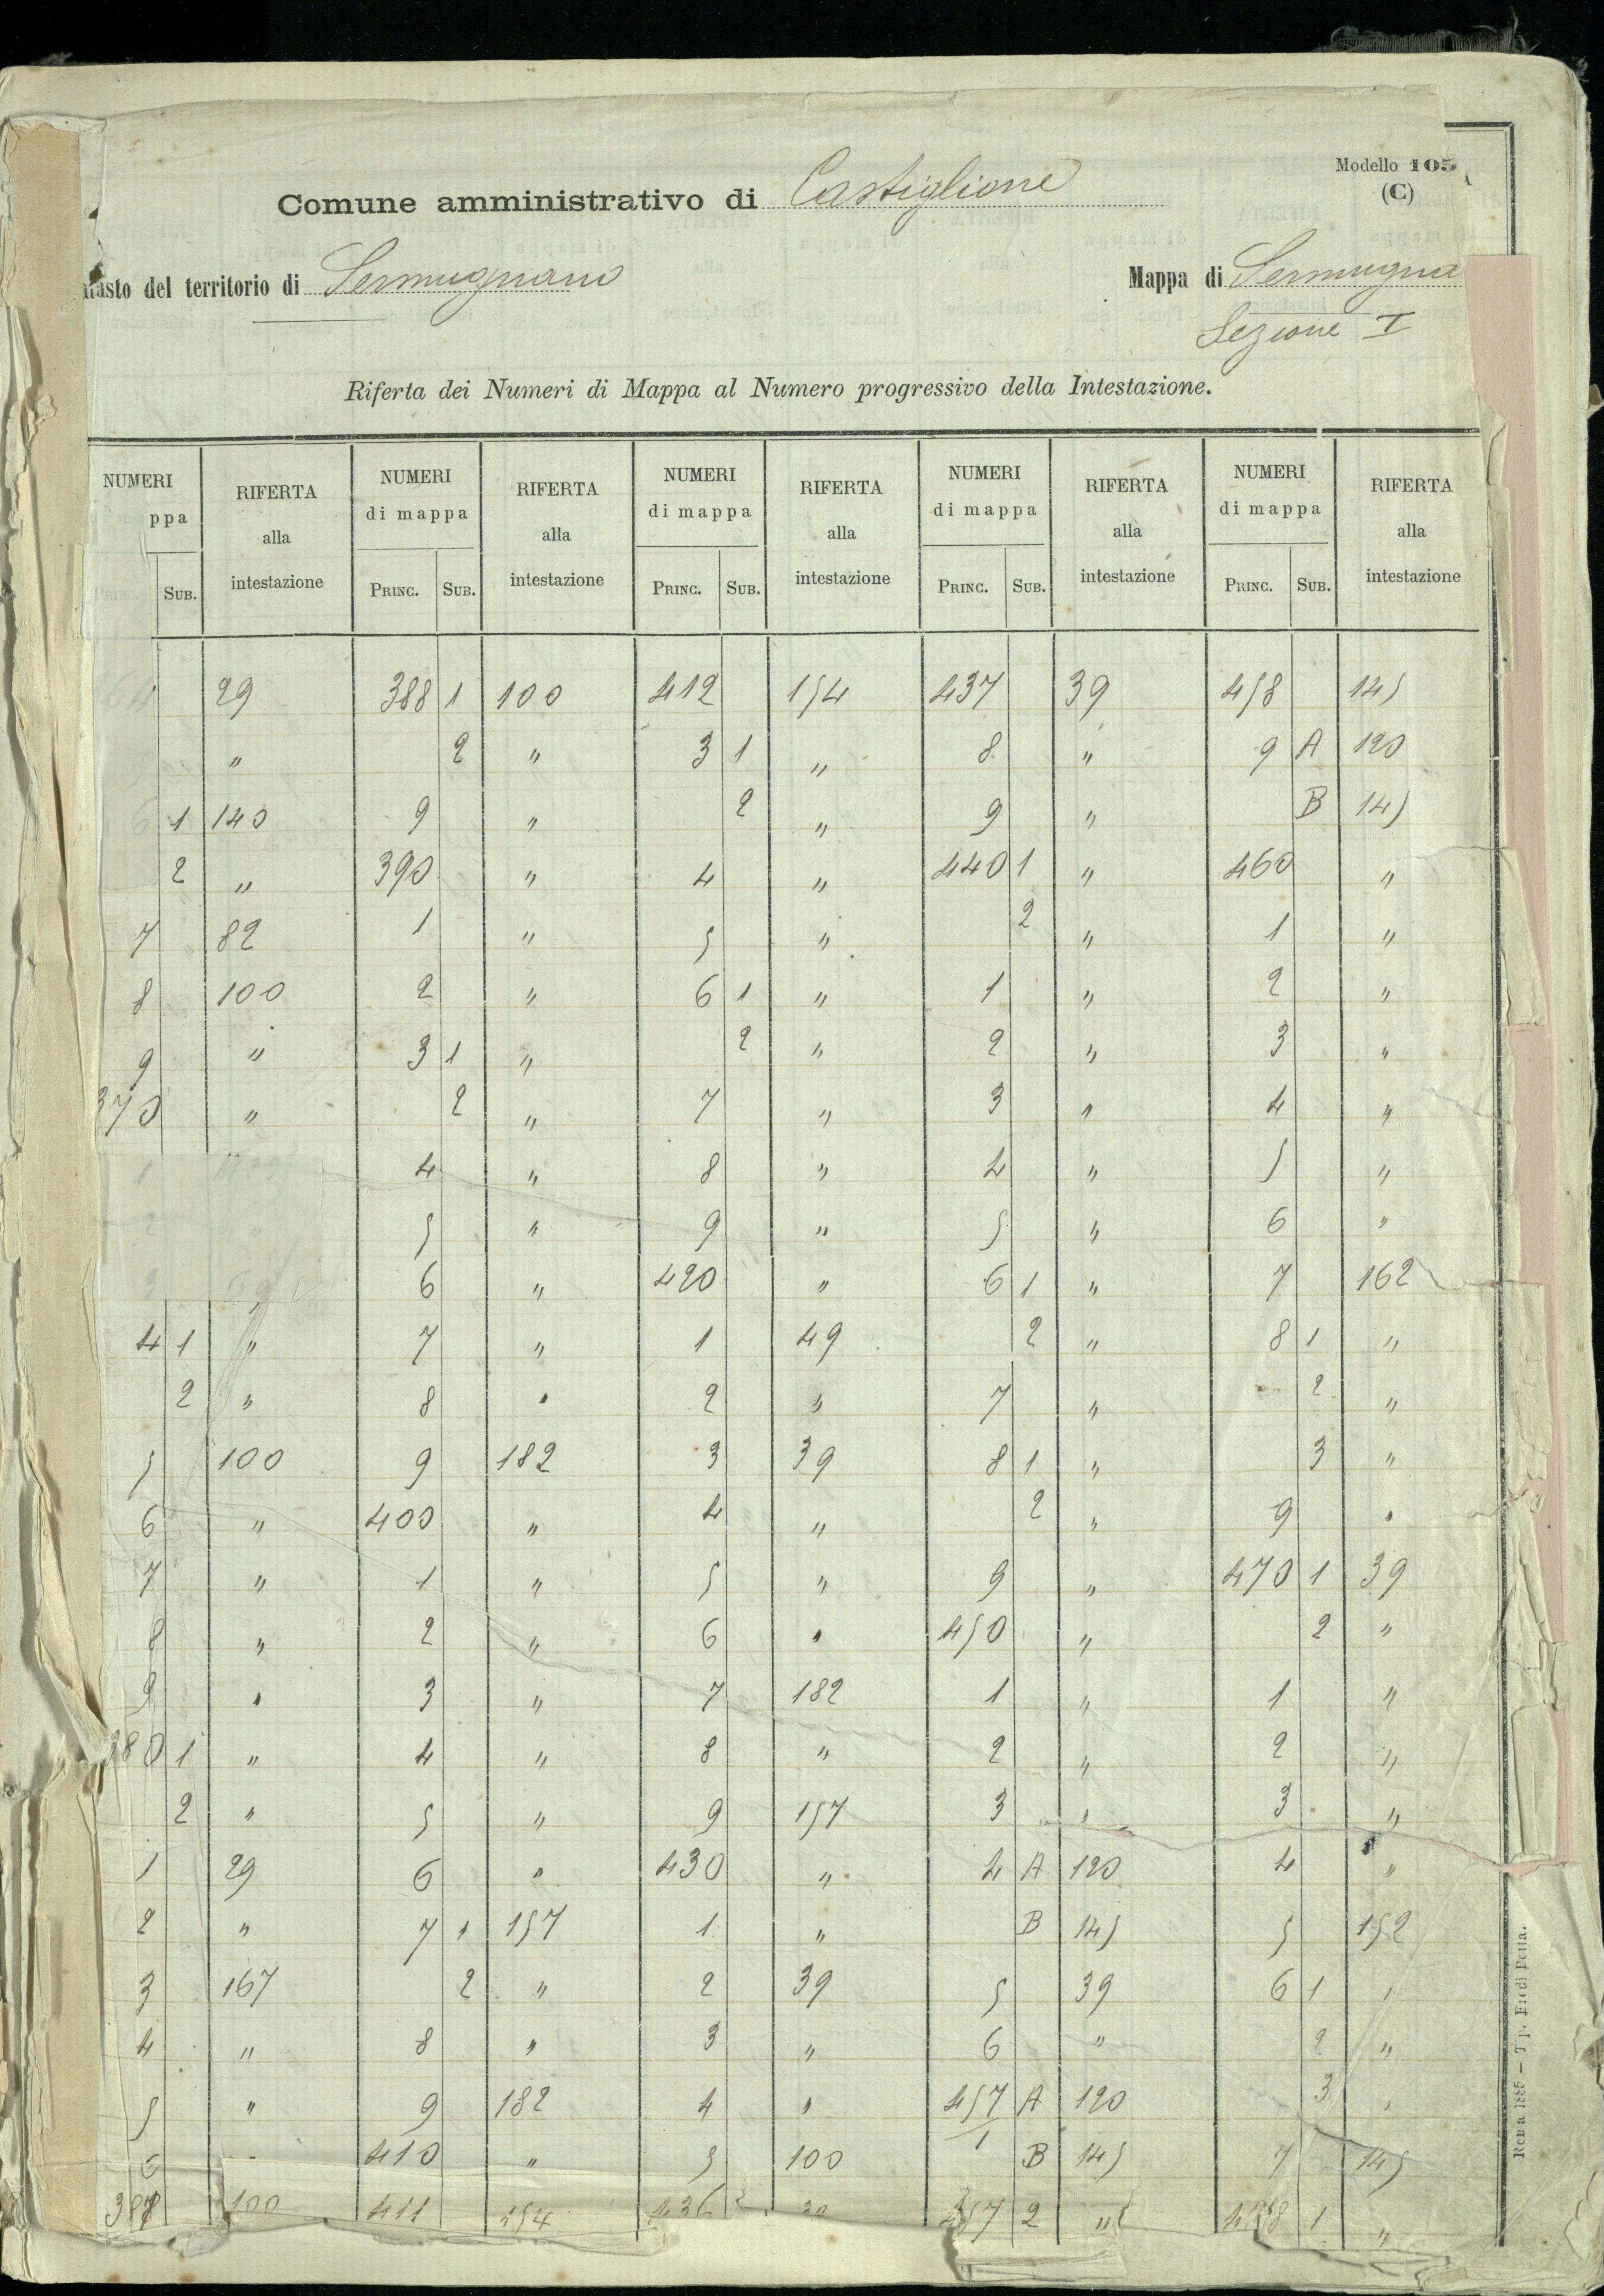 Modello 105
(C)
Comune amministrativo di Castiglione
del territorio di Sermugnano
Mappa di Sermugna
Sezione I
Riferta dei Numeri di Mappa al Numero progressivo della Intestazione.
NUMERI RIFERTA NUMERI RIFERTA NUMERI RIFERTA NUMERI RIFERTA NUMERI RIFERTA
ppa alla di mappa alla di mappa alla di mappa alla di mappa alla
SUB. intestazione PRINC. SUB. intestazione PRINC. SUB. intestazione PRINC. SUB. intestazione PRINC. SUB. intestazione
64 29 388 1 100 412 154 437 39 458 145
" 2 " 3 1 " 8 " 9 A 120
6 1 140 9 " 2 " 9 " B 145
2 " 390 " 4 " 440 1 " 460 "
7 82 1 " 5 " 2 " 1 "
8 100 2 " 6 1 " 1 " 2 "
9 " 3 1 " 2 " 2 " 3 "
370 " 2 " 7 " 3 " 4 "
1 4 " 8 " 4 " 5 "
2 " 5 " 9 " 5 " 6 "
6 " 420 " 6 1 " 7 162
4 1 " 7 " 1 49 2 " 8 1 "
2 " 8 " 2 " 7 " 2 "
5 100 9 182 3 39 8 1 " 3 "
6 " 400 " 4 " 2 " 9 "
7 " 1 " 5 " 9 " 470 1 39
8 " 2 " 6 " 450 " 2 "
9 " 3 " 7 182 1 " 1 "
380 1 " 4 " 8 " 2 " 2 "
2 " 5 " 9 157 3 " 3 "
1 29 6 " 430 " 4 A 120 4 "
2 " 7 1 157 1 " B 145 5 152
3 167 2 " 2 39 5 39 6 1 "
4 " 8 " 3 " 6 " 2 "
5 " 9 182 4 " 457 A 120 3 "
6 " 410 " 5 100 1 B 145 7 145
387 100 411 154 436 457 2 " 1 "
Roma 1885 — Tip. Eredi Botta.